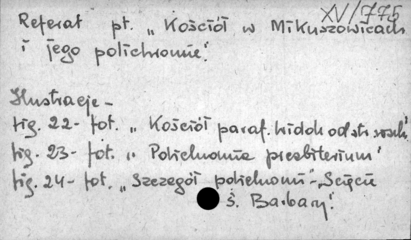 XV/775
Referat pt. „Kościół w Mikuszowicach
i jego polichromie."
Ilustracje -
fig. 22- fot. „Kościół paraf. widok od str.
fig. 23- fot. „Polichromia presbiterium"
fig. 24- fot. „Szczegół polichromii - „Ścięcie
ś. Barbary."